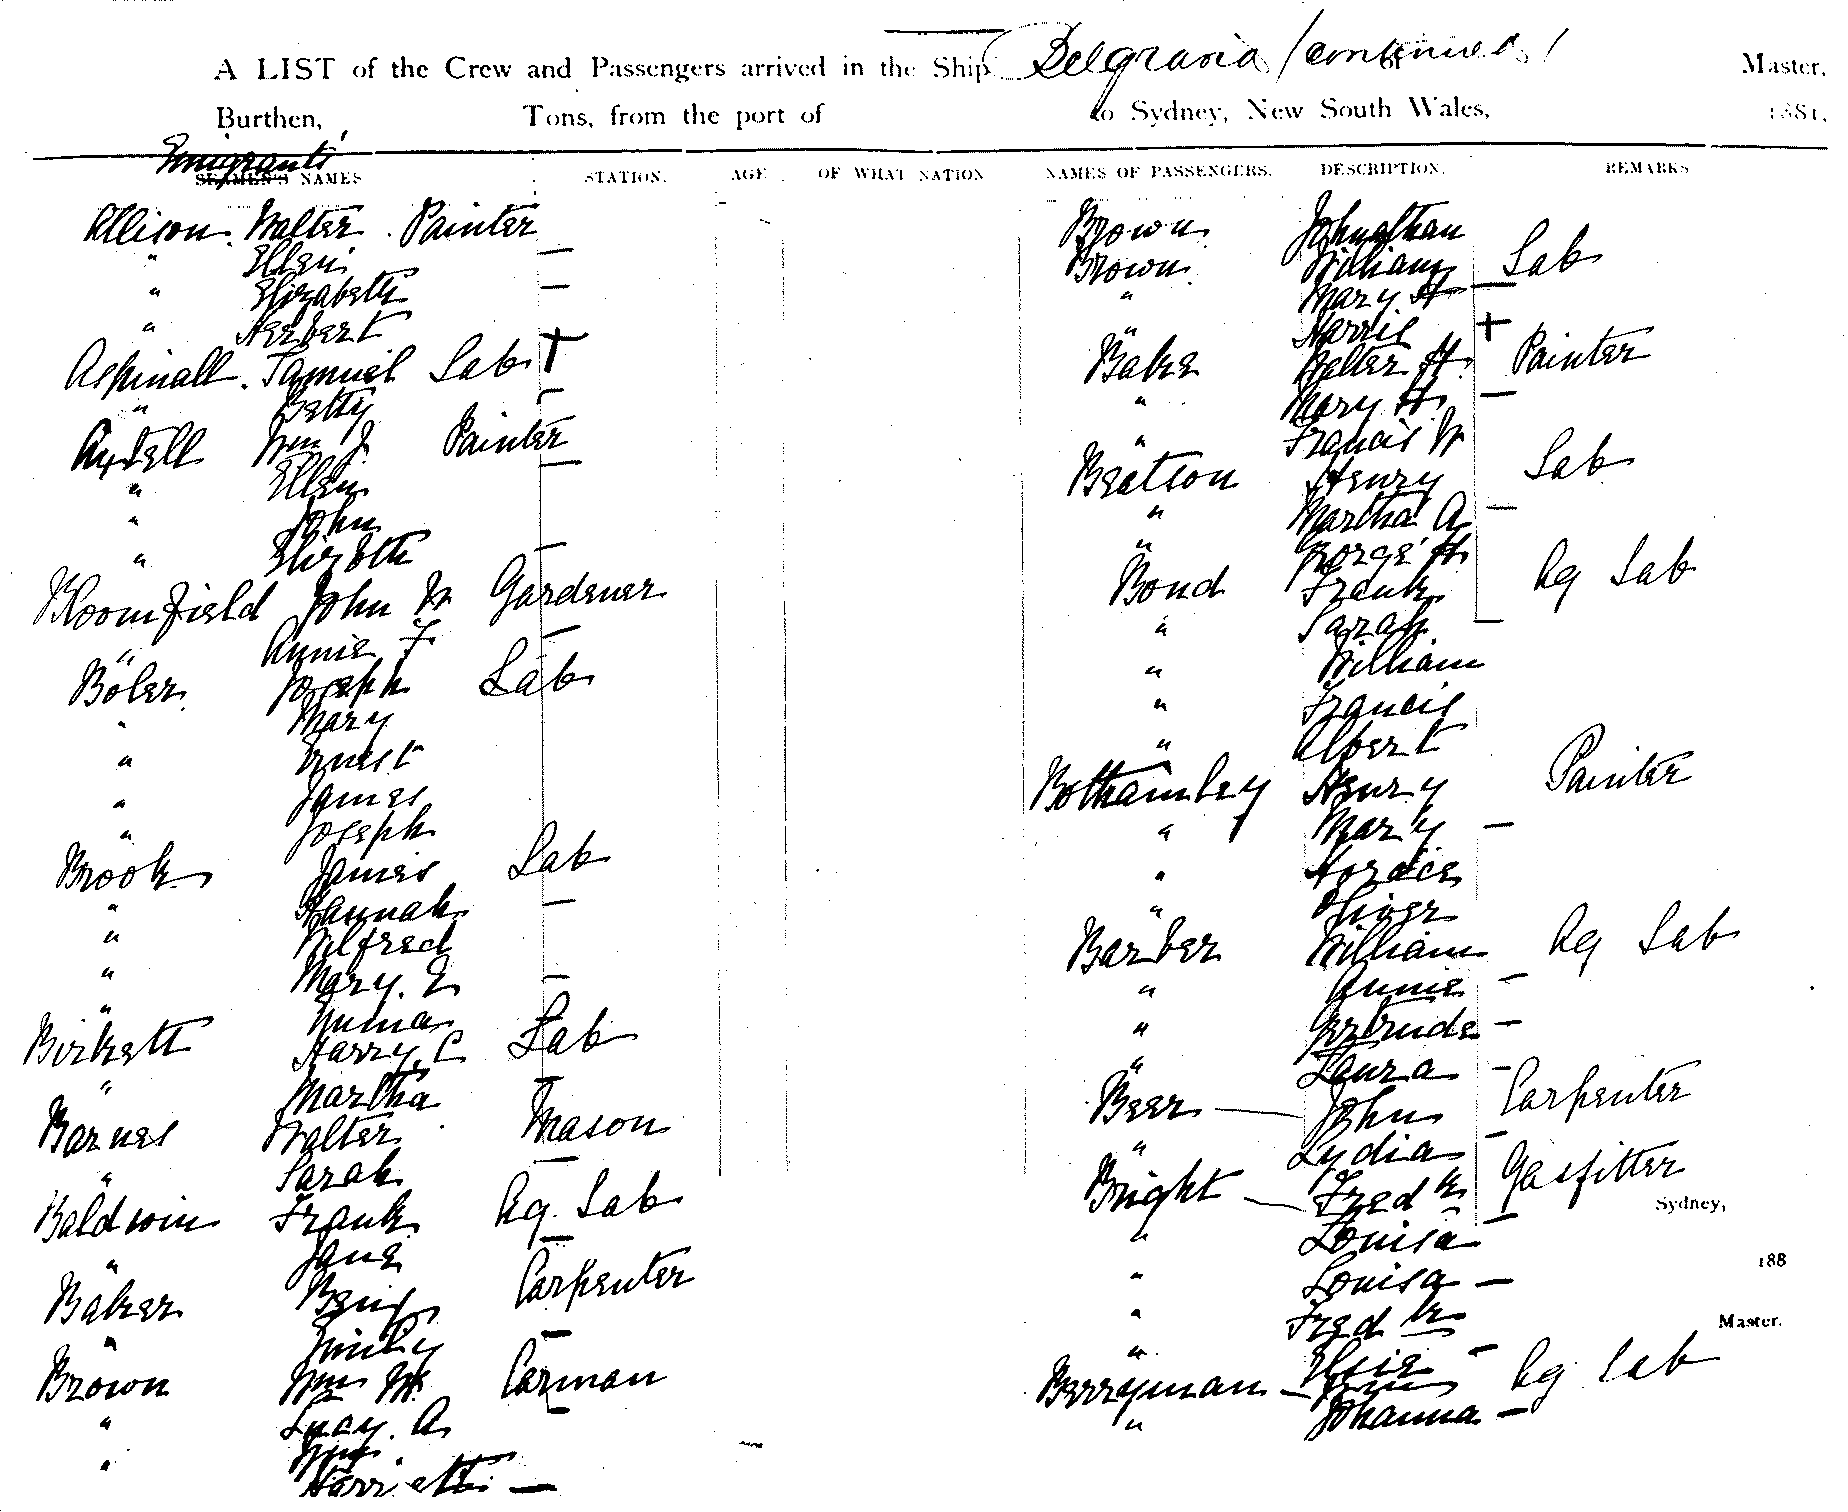 A LIST of the Crew and Passengers arrived in the Ship Belgravia (continued) Master,
Burthen, Tons, from the port of to Sydney, New South Wales, 1881,
Emigrants'
SEAMEN'S NAMES STATION. AGE OF WHAT NATION NAMES OF PASSENGERS. DESCRIPTION. REMARKS
Allison Walter Painter
" Ellen —
" Elizabeth —
" Herbert
Aspinall Samuel Lab
" Betty —
Axtell Wm J Painter
" Ellen —
" John
" Elizbth —
Bloomfield John W Gardener
" Annie F —
Boler Joseph Lab
" Mary
" Ernest
" James
" Joseph
Brook James Lab
" Hannah —
" Wilfred
" Mary. E —
" Emma —
Birkett Harry. C Lab
" Martha —
Barnes Walter Mason
" Sarah —
Baldwin Frank Ag. Lab
" Jane —
Baker Benj Carpenter
" Emily —
Brown Wm W Carman
" Lucy. A —
" Wm
Harriett —
Brown Johnathan
Brown William Lab
" Mary H —
" Harris
Baker Walter H Painter
" Mary H —
" Francis W
Beatson Henry Lab
" Martha A —
" George H
Bond Frank Ag Lab
" Sarah —
" William
" Francis
" Albert
Bothamley Henry Painter
" Mary —
" Horace
" Oliver
Barber William Ag Lab
" Annie —
" Gertrude —
" Laura —
Beer — John Carpenter
" Lydia —
Bright — Fredk Gasfitter
" Louisa —
" Louisa —
" Fredk
" Elsie —
Berryman — Ag Lab
" Johanna —
Sydney,
188
Master.